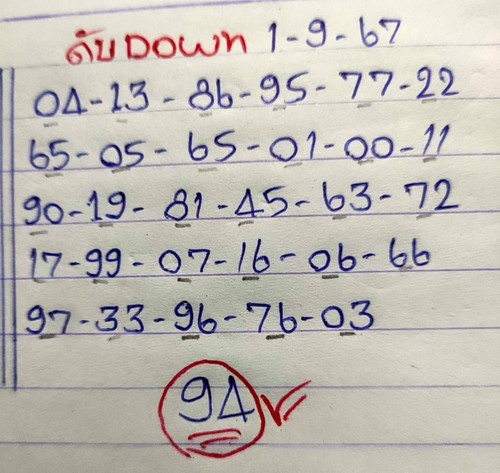 ดับDOWN 1-9-67
04-13-86-95-77-22
65-05-65-01-00-11
90-19-81-45-63-72
17-99-07-16-06-66
97-33-96-76-03
94